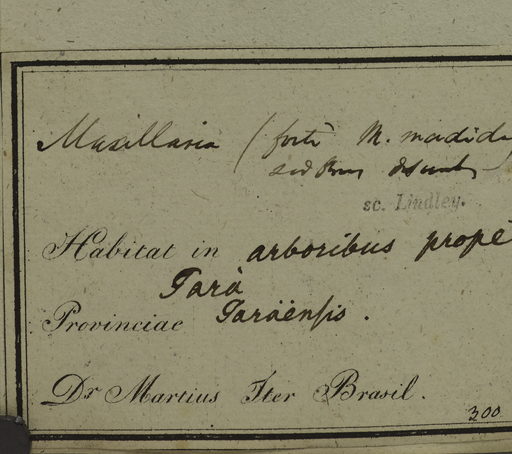 Maxillaria (forte M. madida
sed
sc. Lindley.
Habitat in arboribus prope
Parà
Provinciae Paraënsis.
Dr Martius Iter Brasil.
300